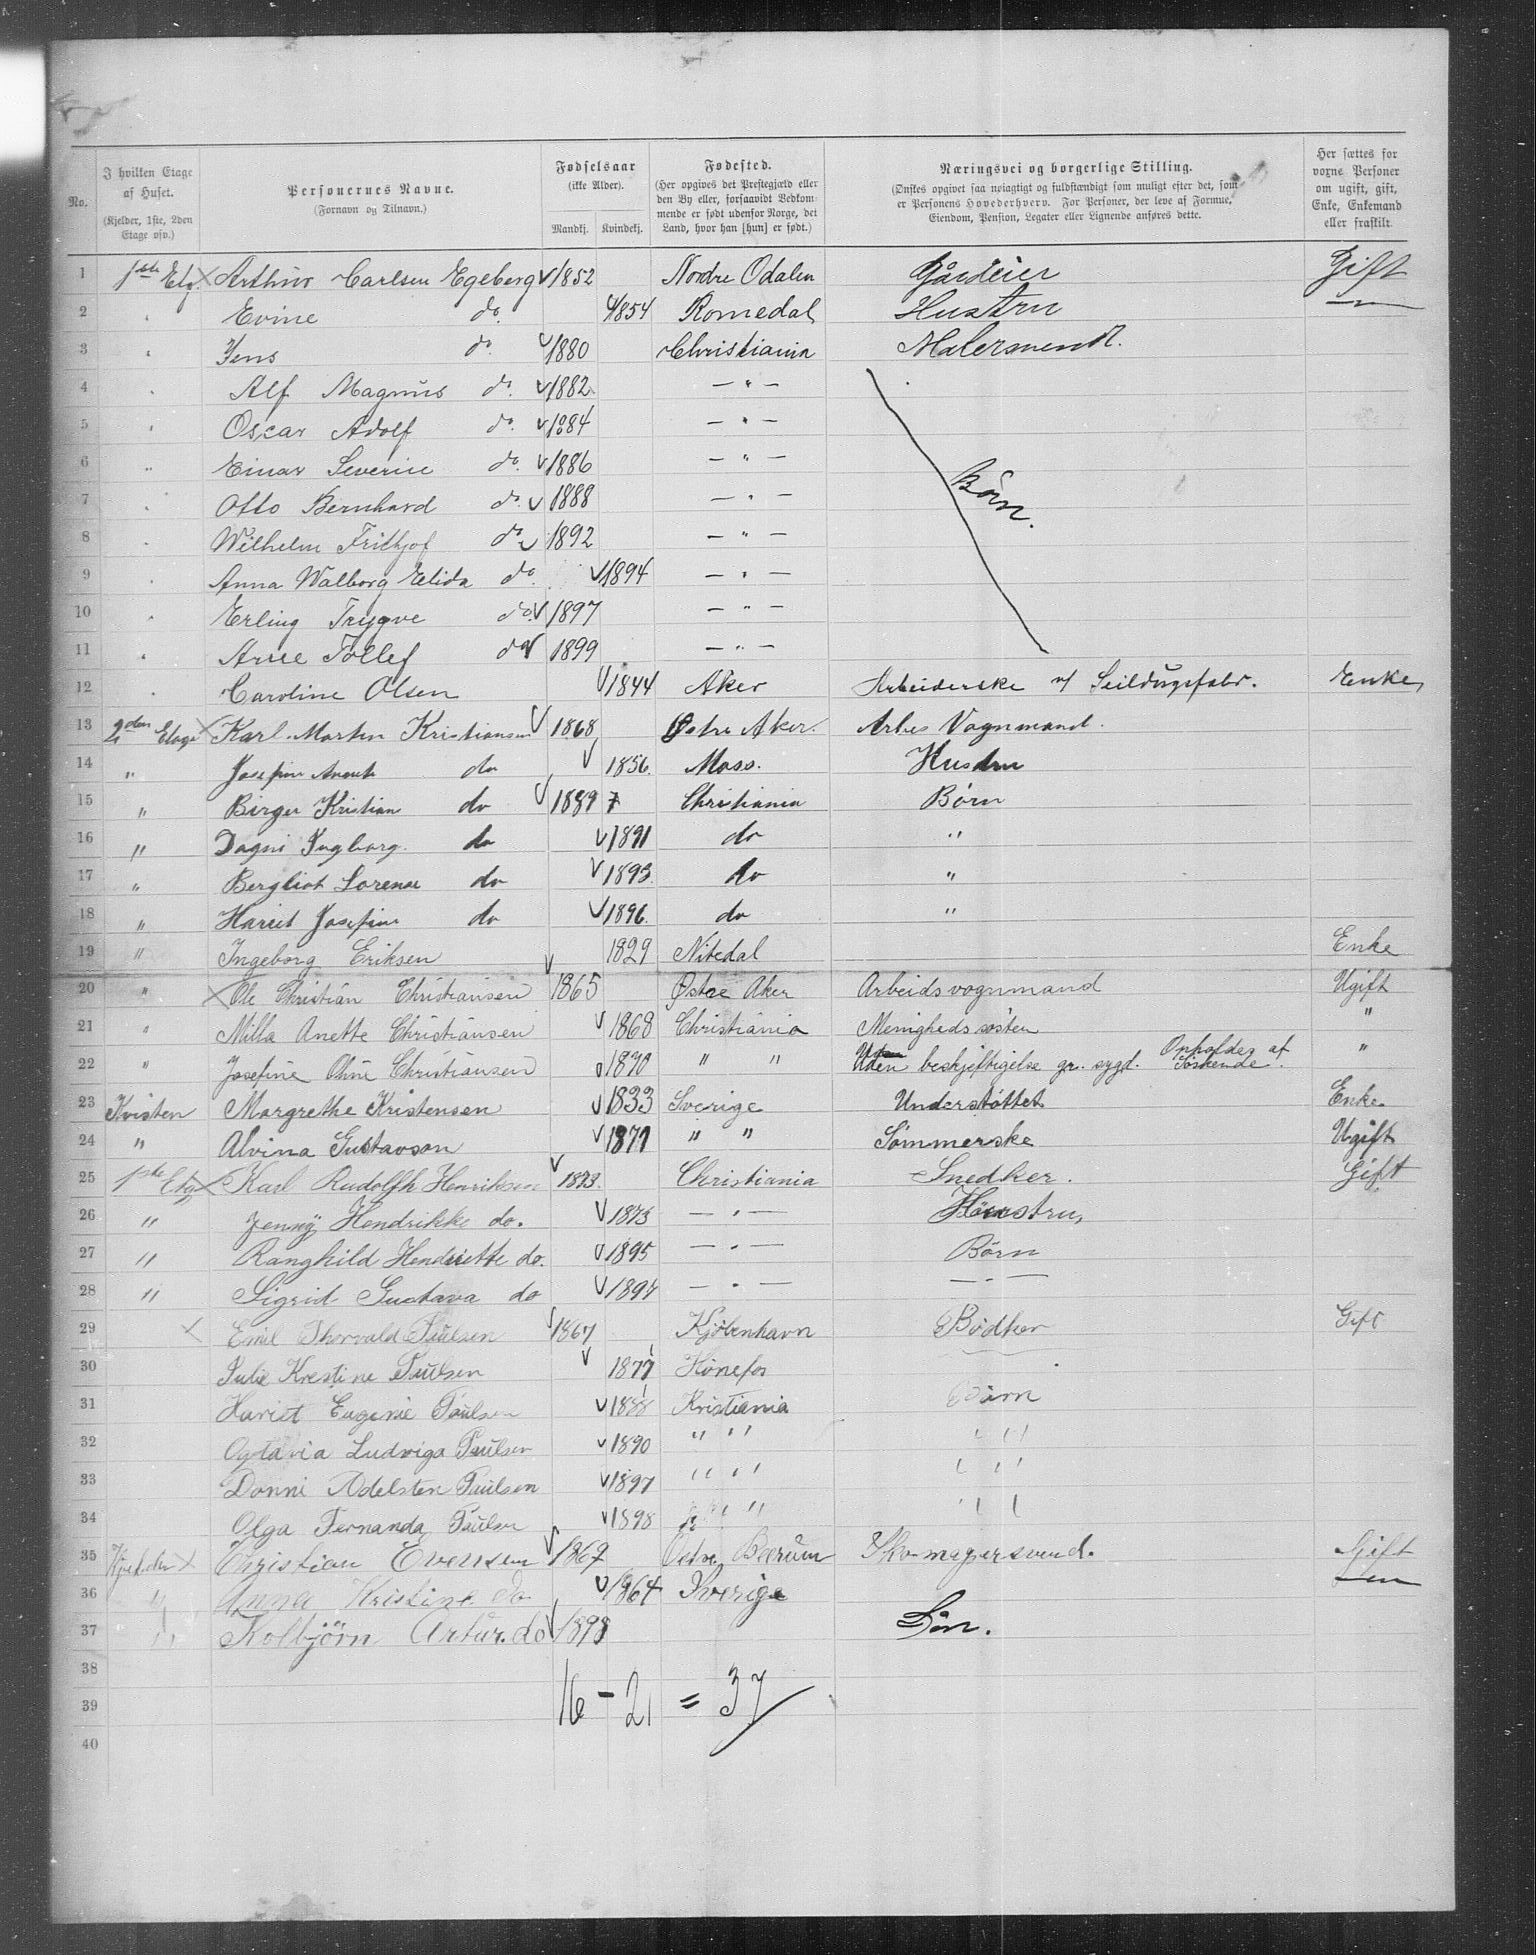 No.
I hvilken Etage af Huset.
(Kjelder, 1ste, 2den Etage osv.)
Personernes Navne.
(Fornavn og Tilnavn.)
Fødselsaar
(ikke Alder).
Mandkj. Kvindekj.
Fødested.
(Her opgives det Prestegjæld eller den By eller, forsaavidt Vedkommende er født udenfor Norge, det Land, hvor han [hun] er født.)
Næringsvei og borgerlige Stilling.
(Ønskes opgivet saa nøiagtigt og fuldstændigt som muligt efter det, som er Personens Hovederhverv. For Personer, der leve af Formue, Eiendom, Pension, Legater eller Lignende anføres dette.
Her sættes for vorne Personer om ugift, gift, Enke, Enkemand eller fraskilt.
1 1ste Etg. Arthur Carlsen Egeberg 1852 Nordre Odalen Gårdeier Gift
2 " Evine do. 1854 Romedal Hustru — " —
3 " Jens do. 1880 Christiania Malersvend.
4 " Alf Magnus do. 1882 — " —
5 " Oscar Adolf do. 1884 — " —
6 " Einar Severin do. 1886 — " —
7 " Otto Bernhard do. 1888 — " — Børn.
8 " Wilhelm Frithjof do 1892 — " —
9 " Anna Walborg Elida do. 1894 — " —
10 " Erling Trygve do. 1897 — " —
11 " Arne Tollef do 1899 — " —
12 " Caroline Olsen 1844 Aker Arbeiderske v/ Seildugsfabr. Enke
13 2den Etage Karl Martin Kristiansen 1868 Østre Aker. Arbes Vognmand.
14 " Josefine do 1856. Moss. Hustru
15 " Birger Kristian do 1889 Christiania Børn
16 " Dagni Ingborg. do 1891 do "
17 " Bergliot Lorense do 1893. do "
18 " Hariet Josefine do 1896. do "
19 " Ingeborg Eriksen 1829 Nitedal Enke
20 " Ole Christian Christiansen 1865 Østre Aker Arbeidsvognmand Ugift
21 " Milla Anette Christiansen 1868 Christiania Menighedssøster "
22 " Josefine Oline Christiansen 1870 " " Uden beskjeftigelse gr. sygd. Opholdes af Søskende. "
23 Kvisten Margrethe Kristensen 1833 Sverige Understøttet Enke
24 " Alvina Gustavson 1871 " " Sømmerske Ugift
25 1ste Etg Karl Rudolfh Henriksen 1873. Christiania Snedker. Gift
26 " Jenny Hendrikke do. 1873 — " — Hustru,
27 " Ranghild Hendriette do. 1895 — " — Børn
28 " Sigrid Gustava do 1897 — " — — " —
29 Emil Thorvald Paulsen 1867 Kjøbenhavn Bødker Gift
30 Julie Krestine Paulsen 1871 Hønefos
31 Hariet Eugenie Paulsen 1888 Kristiania Børn
32 Ogtavia Ludviga Paulsen 1890 " " " "
33 Donni Adelsten Paulsen 1897 " " " "
34 Olga Fernanda Paulsen 1898 " " " "
35 Kjelderen Christian Evensen 1867 Østre Bærum Skomagersvend. Gift
36 " Anna Kristine do 1864 Sverige — " —
37 " Kolbjörn Artur. do 1898 Søn.
38
39 16 - 21 = 37
40